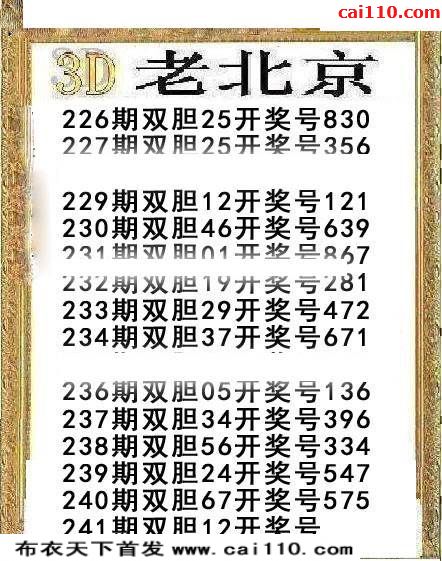 cai110.com
3D 老北京
226期双胆25开奖号830
227期双胆25开奖号356
229期双胆12开奖号121
230期双胆46开奖号639
231期双胆01开奖号867
232期双胆19开奖号281
233期双胆29开奖号472
234期双胆37开奖号671
236期双胆05开奖号136
237期双胆34开奖号396
238期双胆56开奖号334
239期双胆24开奖号547
240期双胆67开奖号575
241期双胆12开奖号
布衣天下首发 www.cai110.com